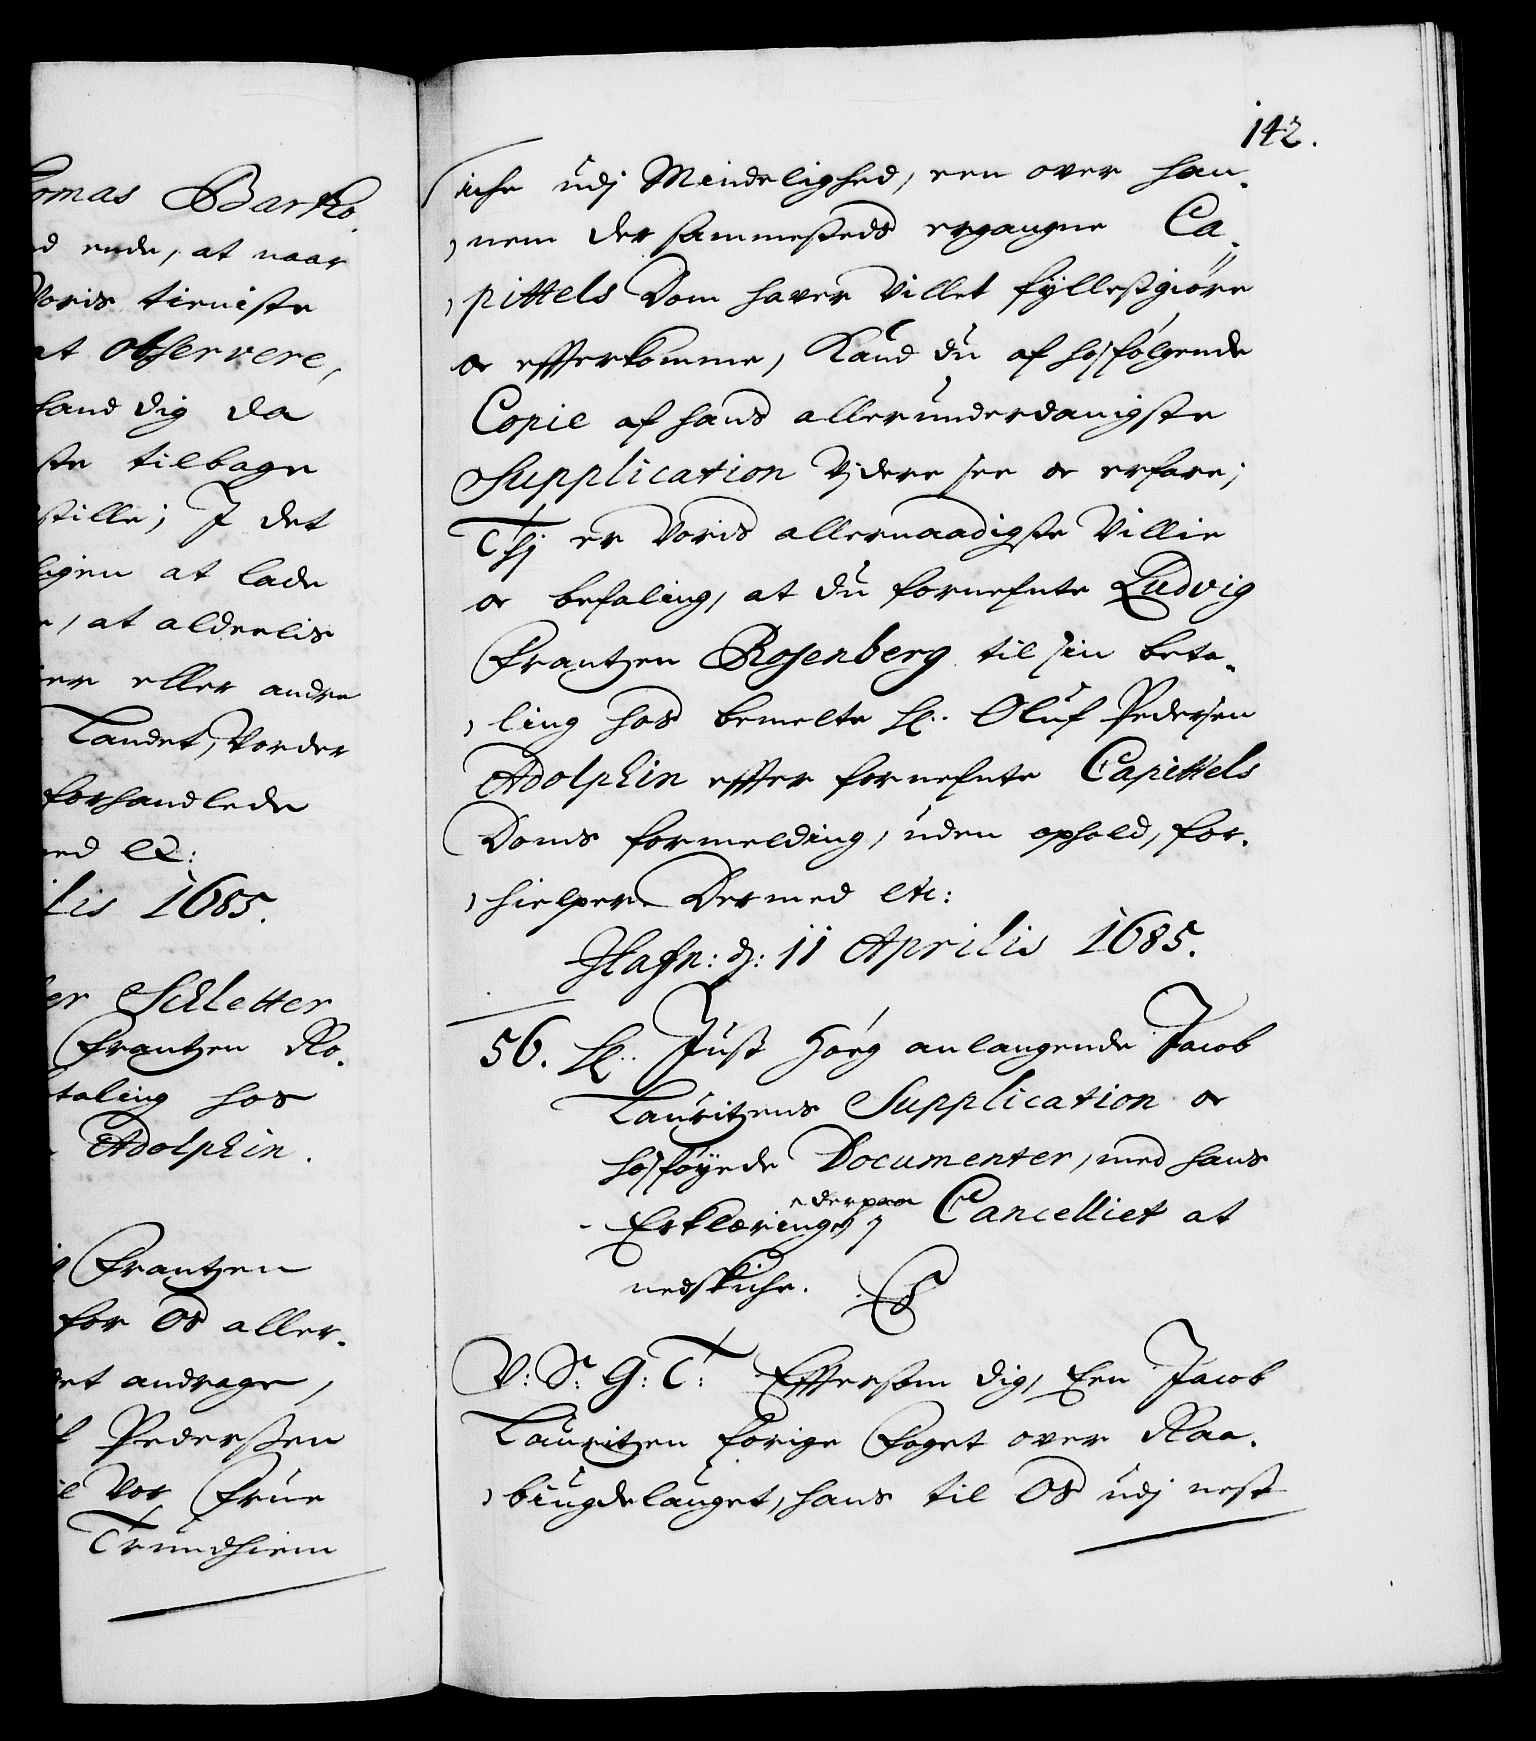 omas Bartho.
ed ende, at naar
Voris tieniste
at observere,
land dig da
ste tilbage
stille; I det
ligen at lade
at alderlis
er eller andre
Landet, Vorder
forhandlede
ed etc:
lis 1685.
er Schletter
Frantzen Ro.
taling hos
Adolphin.
Frantzen
for Os aller.
et andrage,
Pederssen
Vor Frue
Trundhiem
142.
iche udj Mindelighed, een over han.
nem der sammesteds ergangne Ca.
pittels Dom haver villet fyllestgiøre
oc efterkomme, Kand du af hosfølgende
Copie af hans allerunderdanigste
Supplication Vjdere see oc erfare;
Thj er Voris allernaadigste Villie
oc befaling, at du fornefnte Ludvig
Frantzen Rosenberg til sin beta.
ling hos bemelte Sl. Oluf Pedersen
Adolphin efter fornefnte Capittels
Doms formelding, uden ophold, for.
hielper. Dermed etc:
Hafn: d: 11 Aprilis 1685.
56. Hr. Just Høeg anlangende Jacob
Lauritzens Supplication oc
hosføyede Documenter, med hans
Erklæring derpaa j Cancelliet at
nedskiche.
V: S: G: T: Eftersom dig, Een Jacob
Lauritzen forige Foget over Raa.
biugdelauget, hans til Os udj nest